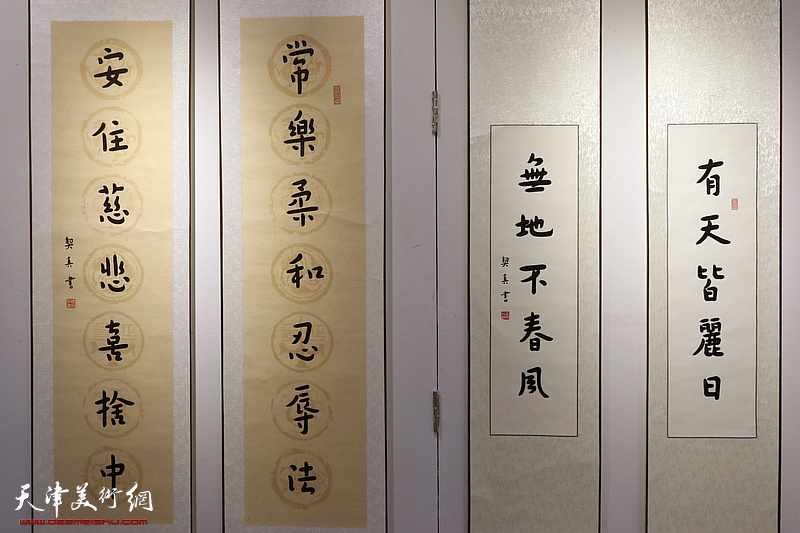 有天皆麗日
無地不春風
契真書
常樂柔和忍辱法
安住慈悲喜捨中
契真書
天津美術網